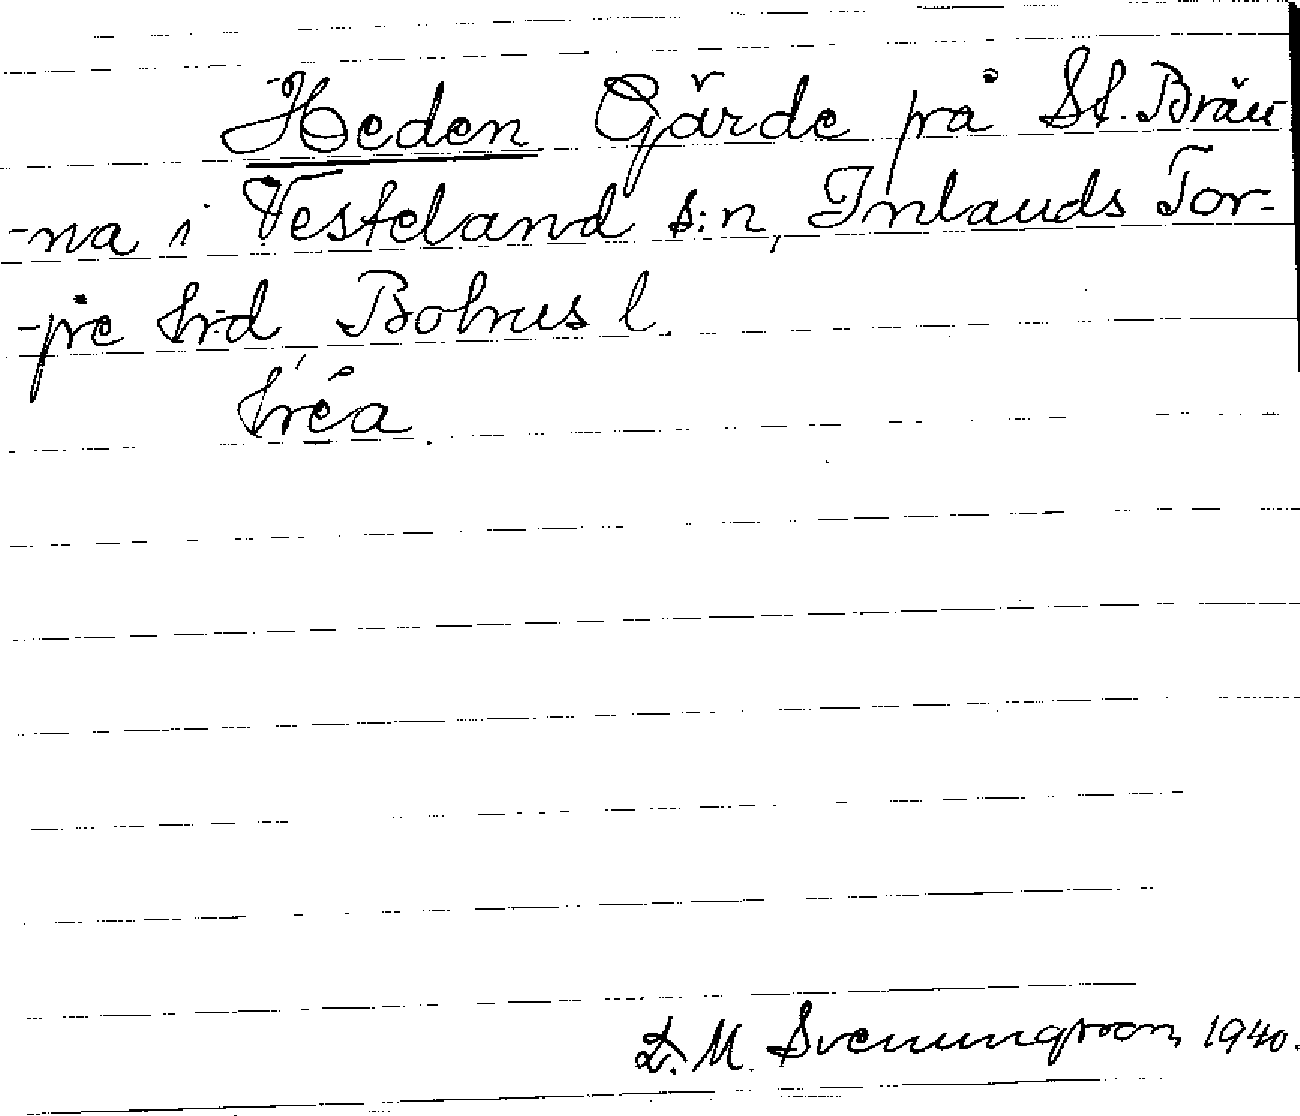 Heden Gärde på St. Brän
-na i Vesteland s:n, Inlands Tor-
-pe hrd Bohus l.
hréa.
D. M. Svenungsson 1940.